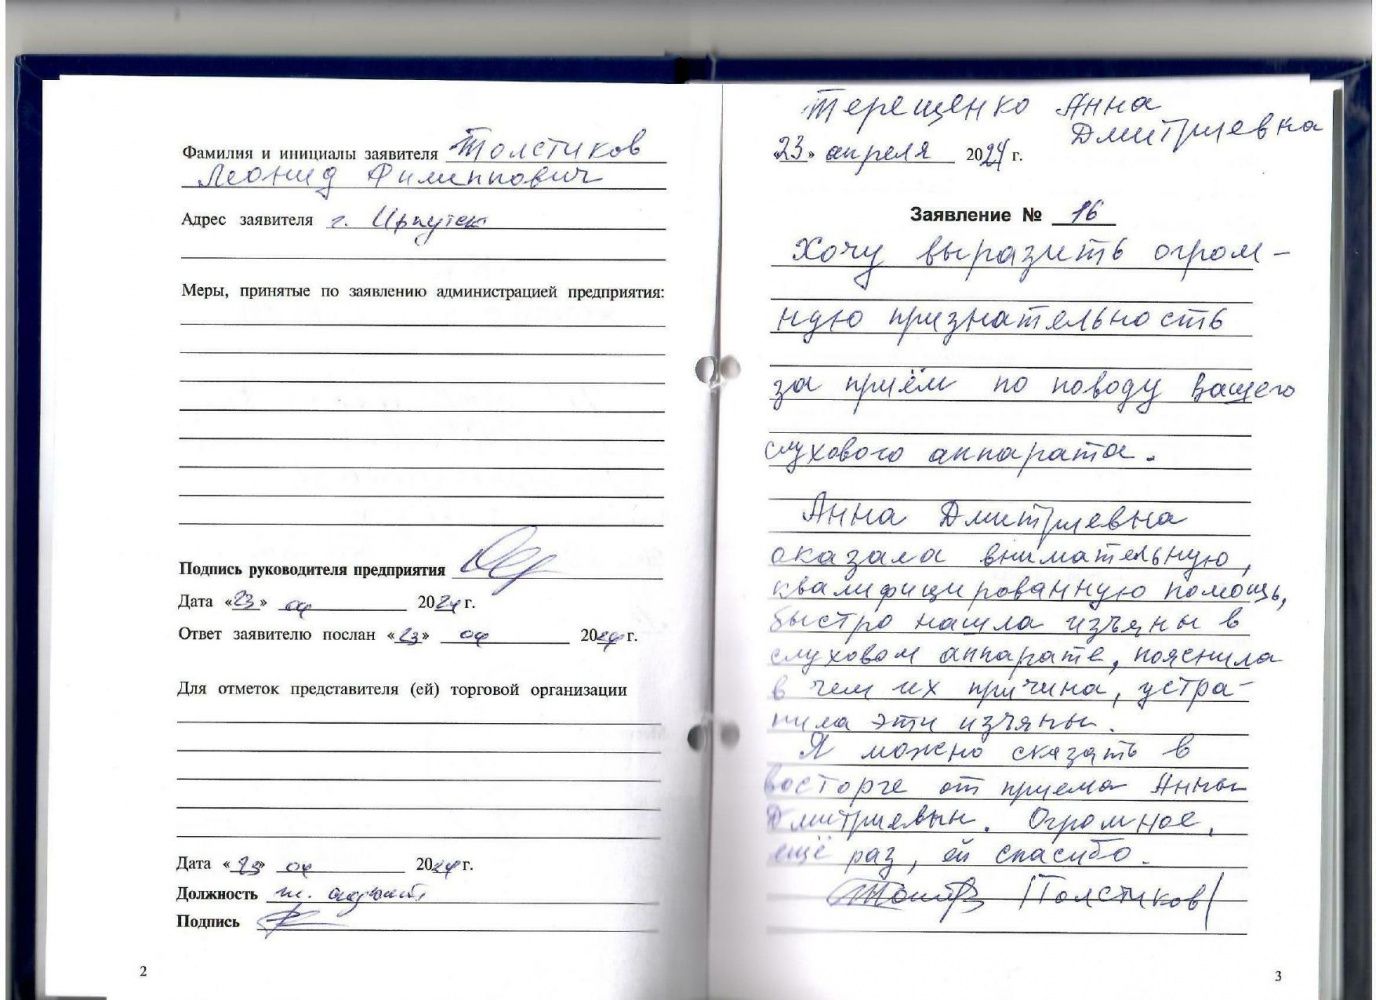 Фамилия и инициалы заявителя Толстиков
Леонид Филиппович
Адрес заявителя г. Иркутск
Меры, принятые по заявлению администрацией предприятия:
Подпись руководителя предприятия
Дата «23» 04 2024 г.
Ответ заявителю послан «23» 04 2024 г.
Для отметок представителя (ей) торговой организации
Дата «23» 04 2024 г.
Должность
Подпись
2
Терещенко Анна
Дмитриевна
«23» апреля 2024 г.
Заявление № 16
Хочу выразить огром-
ную признательность
за приём по поводу вашего
слухового аппарата.
Анна Дмитриевна
оказала внимательную,
квалифицированную помощь,
быстро нашла изъяны в
слуховом аппарате, пояснила
в чем их причина, устра-
нила эти изъяны.
Я можно сказать в
восторге от приема Анны
Дмитриевны. Огромное,
ещё раз, ей спасибо.
/Толстиков/
3